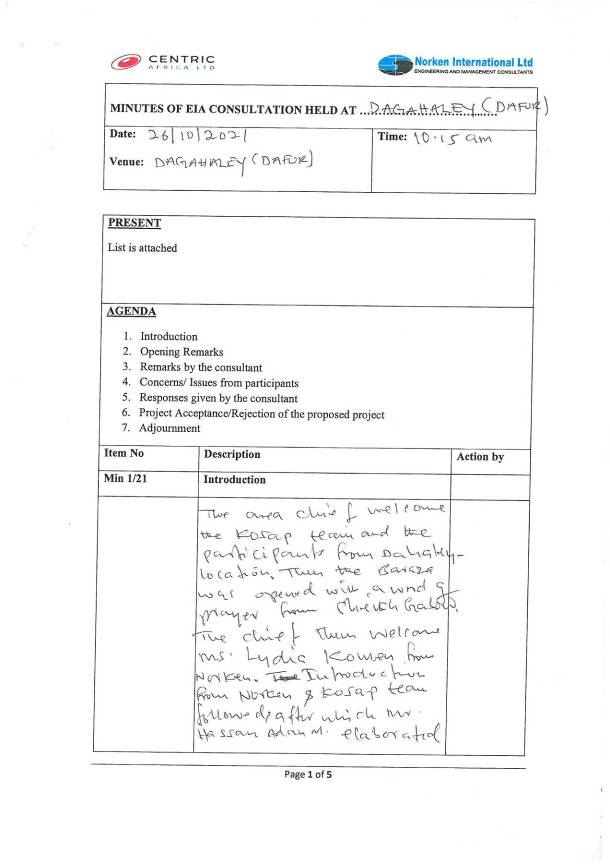 CENTRIC
AFRICA LTD
Norken International Ltd
ENGINEERING AND MANAGEMENT CONSULTANTS
MINUTES OF EIA CONSULTATION HELD AT ...DAGAHALEY (DAFUR)
Date: 26/10/2021
Time: 10.15 am
Venue: DAGAHALEY (DAFUR)
PRESENT
List is attached
AGENDA
1. Introduction
2. Opening Remarks
3. Remarks by the consultant
4. Concerns/ Issues from participants
5. Responses given by the consultant
6. Project Acceptance/Rejection of the proposed project
7. Adjournment
Item No Description Action by
Min 1/21 Introduction
The area chief welcome
the Kosap team and the
participants from
location. Then the Baraza
was opened with a word of
prayer from
The chief then welcome
Ms. Lydia Komen from
Norken. Introduction
from Norken & Kosap team
followed after which Mr.
Hassan Adan M. elaborated
Page 1 of 5